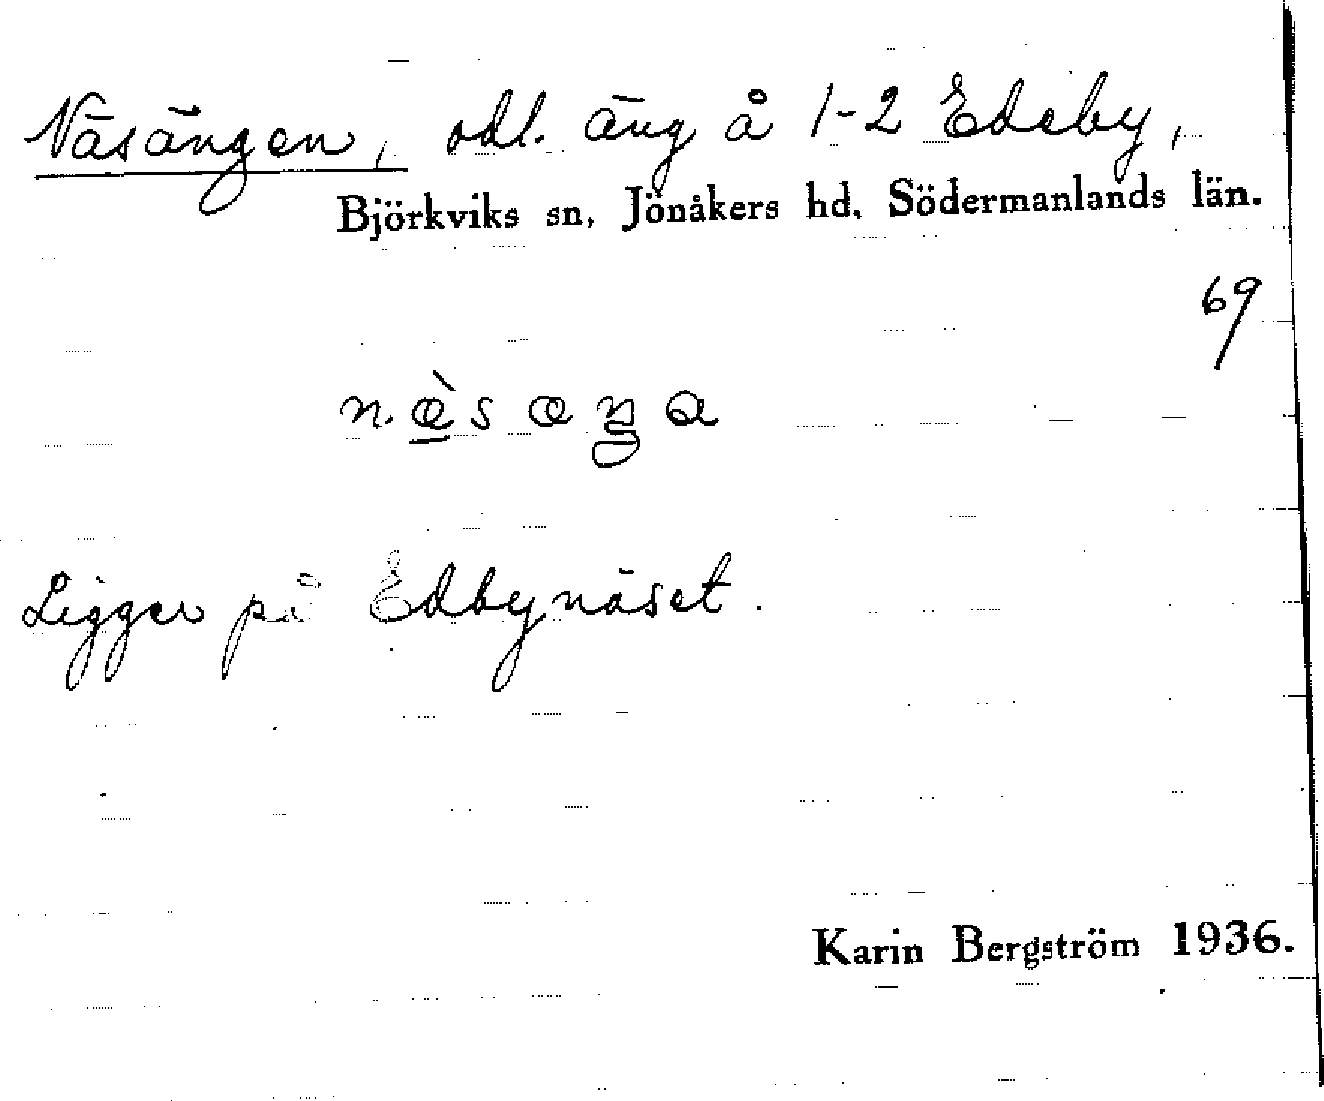 Näsängen, odl. äng å 1-2 Edeby,
Björkviks sn, Jönåkers hd, Södermanlands län.
69
n. æ̀ s æ ŋ a
Ligger på Edbynäset.
Karin Bergström 1936.